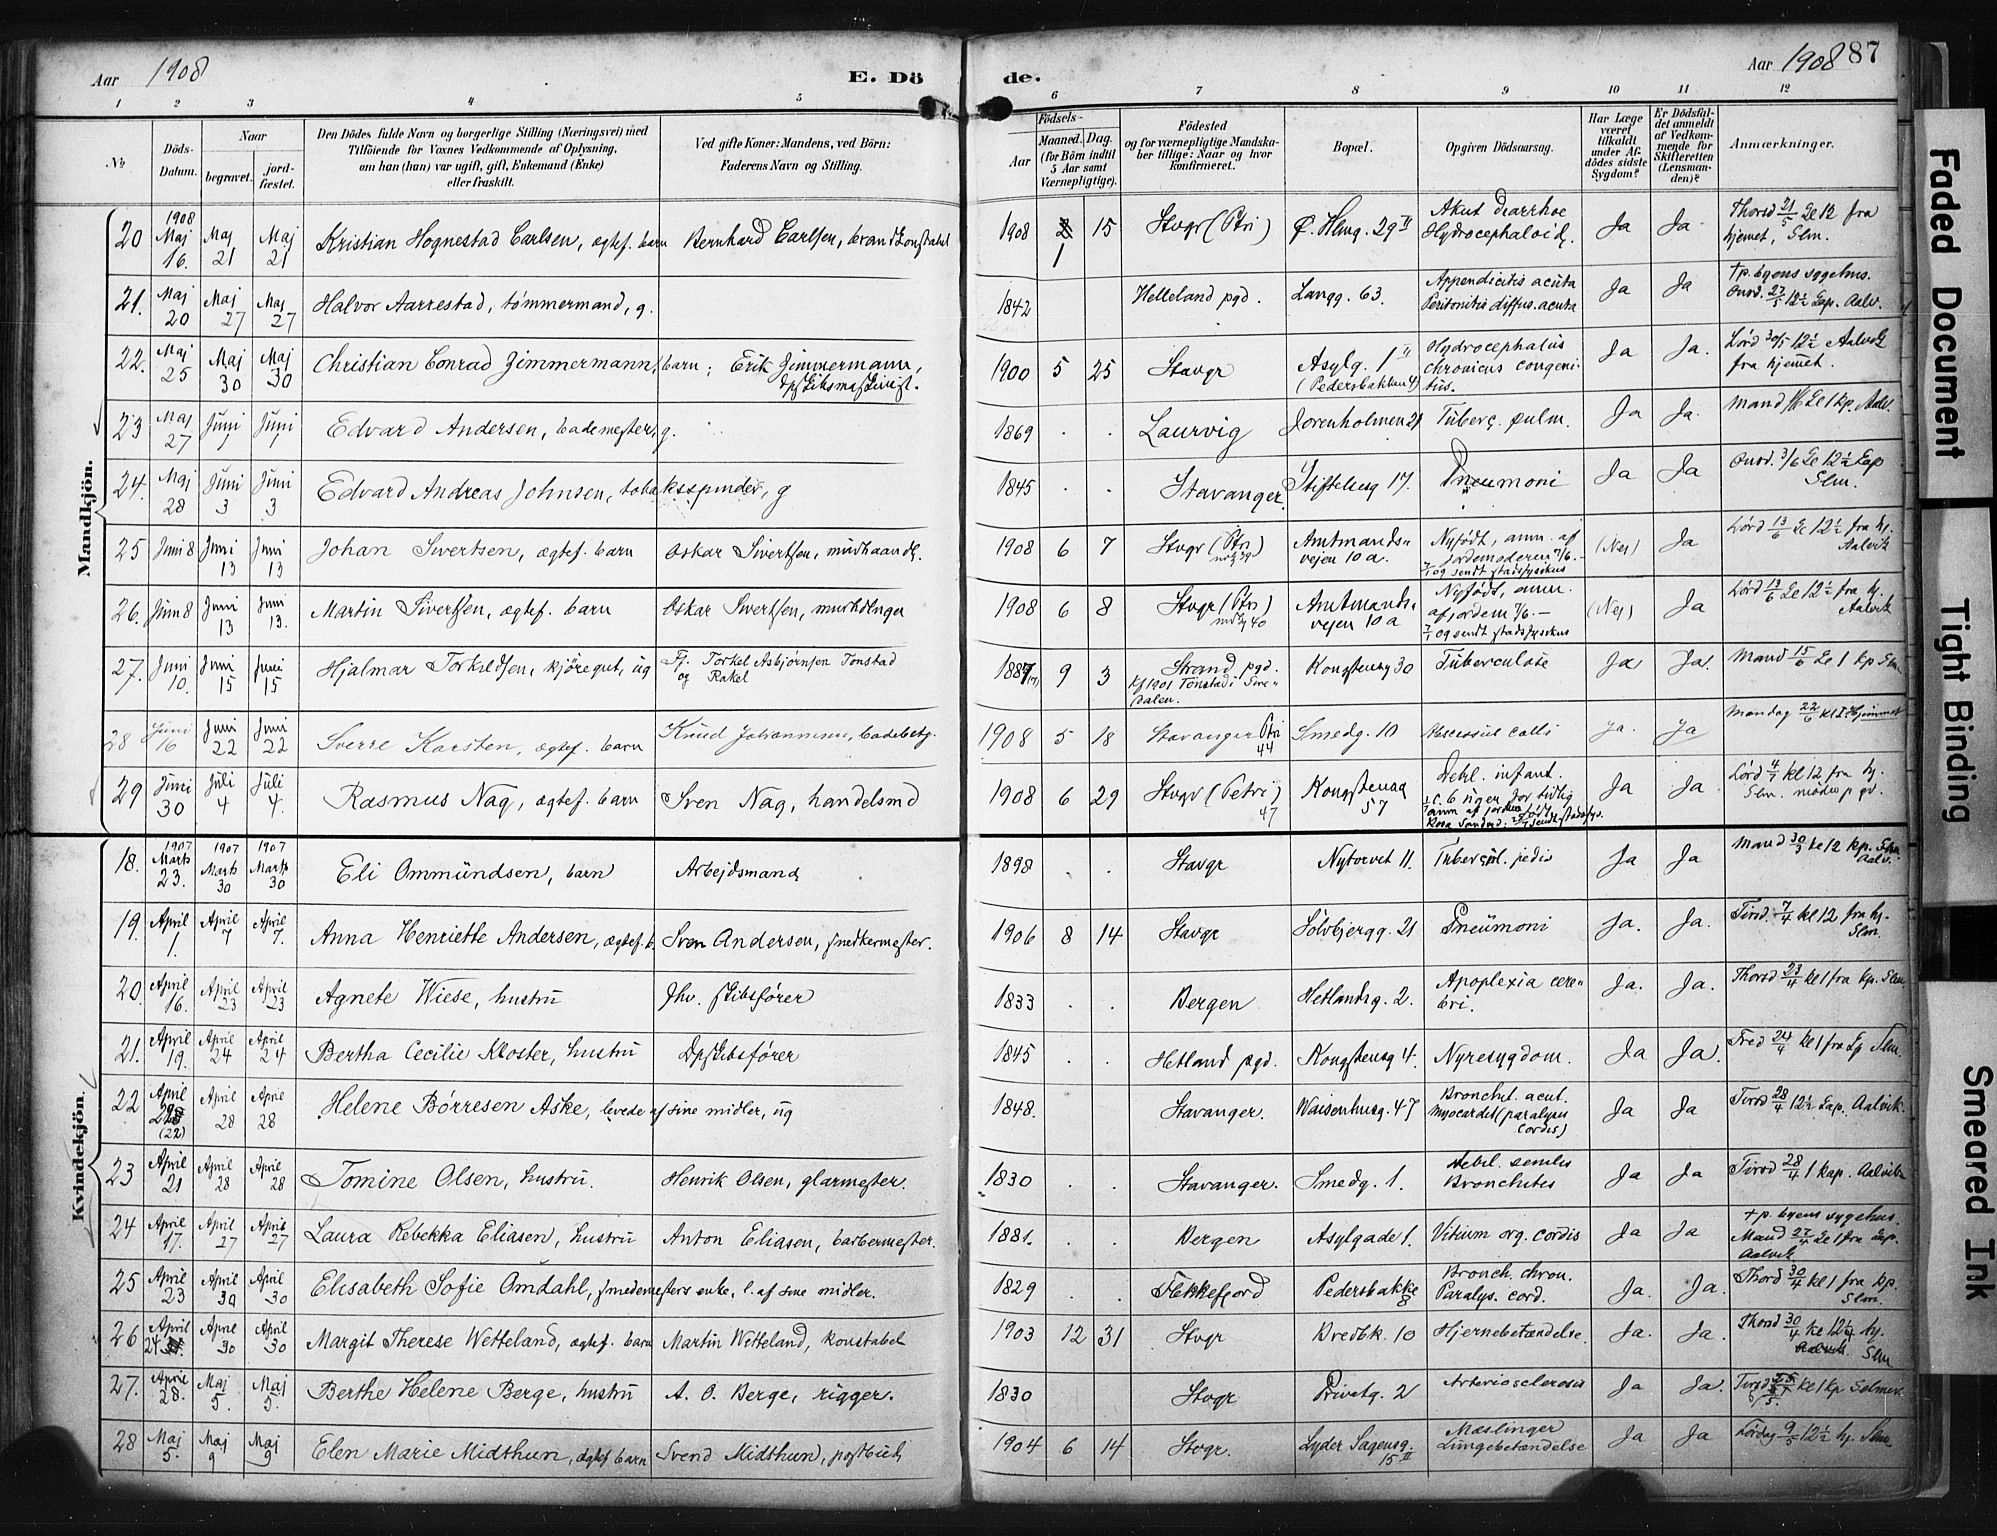 Aar 1908
E. Dö
de.
Aar 1908
87
1 2 3 4 5 6 7 8 9 10 11 12
No
Döds-Datum.
Naar
begravet.
jord-fæstet.
Den Dödes fulde Navn og borgerlige Stilling (Næringsvei) med
Tilföiende for Voxnes Vedkommende af Oplysning,
om han (hun) var ugift, gift, Enkemand (Enke)
eller fraskilt.
Ved gifte Koner: Mandens, ved Börn:
Faderens Navn og Stilling.
Födsels-
Aar
Maaned. Dag.
(for Börn indtil
5 Aar samt
Værnepligtige).
Födested
og for værnepligtige Mandska-
ber tillige: Naar og hvor
konfirmeret.
Bopæl.
Opgiven Dödsaarsag.
Har Læge
været
tilkaldt
under Af-
dödes sidste
Sygdom?
Er Dödsfal-
det anmeldt
af Vedkom-
mende for
Skifteretten
(Lensman-
den)?
Anmærkninger.
Mandkjön.
20 1908 Maj 16. Maj 21 Maj 21 Kristian Hognestad Carlsen, ægtef. barn Bernhard Carlsen, brandkonstabel 1908 1 15 Stvgr (Ptri) Ø. Hlmg. 29 II Akut diarrhoe Hydrocephaloid. Ja Ja Thorsd 21/5 kl 12 fra hjemet, Slm.
21. Maj 20 Maj 27 Maj 27 Halvor Aarrestad, tømmermand, g. 1842 Helleland pgd. Langg. 63. Appendicitis acuta Peritonitis diffus. acuta Ja Ja † p. byens sygehus. Onsd. 27/5 12½ kap. Aalv.
22. Maj 25 Maj 30 Maj 30 Christian Conrad Zimmermann, barn; Erik Zimmermann, dpskibsmaskinist. 1900 5 25 Stavgr Asylg. 1 II (Pedersbakken 4) Hydrocephalus chronicus congenitus. Ja Ja. Lørd 30/5 12½ Aalvik fra hjemet.
23 Maj 27 Juni 1 Juni 1 Edvard Andersen, bademester, g. 1869 . . Laurvig Jorenholmen 21 Tuberc. pulm. Ja Ja. Mand 1/6 kl 1 kp. Aalv.
24. Maj 28 Juni 3 Juni 3 Edvard Andreas Johnsen, tobaksspinder, g 1845 . . Stavanger Stiftelsesg 17. Pneumoni Ja Ja Onsd. 3/6 kl 12½ kap Slm.
25 Juni 8 Juni 13 Juni 13 Johan Sivertsen, ægtef. barn Oskar Sivertsen, murhaandl. 1908 6 7 Stvgr (Ptri) Amtmandsvejen 10 a. Nyfødt, anm. af jordemoderen 7/6. og sendt stadsfysikus (Nej) Ja Lørd 13/6 kl 12½ fra hj. Aalvik
26. Juni 8 Juni 13 Juni 13. Martin Sivertsen, ægtef. barn Oskar Sivertsen, murhdlnger 1908 6 8 Stvgr (Ptri) Amtmandsvejen 10 a Nyfødt, anm. af jordem 7/6. — og sendt stadsfysikus (Nej) Ja Lørd 13/6 kl 12½ fra hj. Aalvik
27. Juni 10. Juni 15 Juni 15 Hjalmar Torkildsen, kjøregut, ug Fj. Torkel Asbjørnsen Tonstad og Rakel 1887 9 3 Strand pgd. kf 1901 Tonstad i Siredalen. Kongstensg 30 Tuberculose Ja Ja. Mand 15/6 kl 1 kp Slm
28 Juni 16 Juni 22 Juni 22 Sverre Karsten, ægtef. barn Knud Johannesen, badebetj. 1908 5 18 Stavanger Ptri 44 Smedg. 10 Abscessus colli Ja. Ja Mandag 22/6 kl 1 Hjemmet
29 Juni 30 Juli 4 Juli 4. Rasmus Nag, ægtef. barn Sven Nag, handelsmd 1908 6 29 Stvgr (Petri) 47 Kongstensg 57 Debil. infant. c. 6 uger for tidlig født Ja Ja Lørd 4/7 kl 12 fra hj. Slm.
Kvindekjön.
18. 1907 Marts 23. 1907 Marts 30 1907 Marts 30 Eli Ommundsen, barn Arbejdsmand 1898 . . Stavgr Nytorvet 11. Tubercul. pedis Ja Ja Mand 30/3 kl 12 kp. Aalv.
19. April 1. April 7 April 7. Anna Henriette Andersen, ægtef. b. Sven Andersen, snedkermester. 1906 8 14 Stavgr Sölvbjergg. 21 Pneumoni Ja. Ja. Tirsd. 7/4 kl 12 fra hj. Slm.
20. April 16. April 23 April 23 Agnete Wiese, hustru Fhv. skibsfører 1833 . . Bergen Hetlandsg. 2. Apoplexia cerebri. Ja. Ja. Thorsd 23/4 kl 1 fra kp. Slm
21. April 19. April 24 April 24 Bertha Cecilie Kloster, hustru Dpskibsfører 1845 . . Hetland pgd. Kongstensg 4. Nyresygdom. Ja Ja. Fred 24/4 kl 1 fra kp Slm.
22 April (22) April 28 April 28 Helene Börresen Aske, levede af sine midler, ug 1848. . . Stavanger. Waisenhusg. 47 Bronchit. acut. Myocardit (paralysis cordis) Ja Ja Tirsd 28/4 12½ kap. Aalvik.
23 April 21 April 28 April 28 Tomine Olsen, hustru. Henrik Olsen, glarmester. 1830 . . Stavanger. Smedg. 1. Debil. senilis Bronchitis Ja Ja Tirsd 28/4 1 kap. Aalvik
24 April 17. April 27 April 27 Laura Rebekka Eliasen, hustru Anton Eliasen, barbermester. 1881. . . Bergen Asylgade 1. Vitium org. cordis Ja Ja † p. byens sygehus. Mand 27/4 kl 1 fra kap. Aalvik
25 April 23 April 30 April 30 Elisabeth Sofie Omdahl, smedemesters enke, l. af sine midler. 1829 . . Flekkefjord Pedersbakke 8 Bronch. chron. Paralys. cord. Ja. Ja. Thorsd 30/4 kl 1 fra kp. Slm.
26 April 24 April 30 April 30 Margit Therese Wetteland, ægtef. barn Martin Wetteland, konstabel 1903 12 31 Stvgr Bredbk. 10 Hjernebetændelse. Ja. Ja. Thorsd 30/4 kl 12¼ hj. Slm
27. April 28. Maj 5. Maj 5. Berthe Helene Berge, hustru A. O. Berge, rigger. 1830 Stvgr Privatg. 2 Arteriosclerosis Ja Ja. Tirsd 5/5 kl 1 kp Selmer.
28 Maj 5. Maj 9 Maj 9 Elen Marie Midthun, ægtef barn Svend Midthun, postbud 1904 6 14 Stvgr. Lyder Sagensg. 15 II Mæslinger Lungebetændelse Ja Ja Lördag 9/5 12½ hj. Slm.
Faded Document
Tight Binding
Smeared Ink